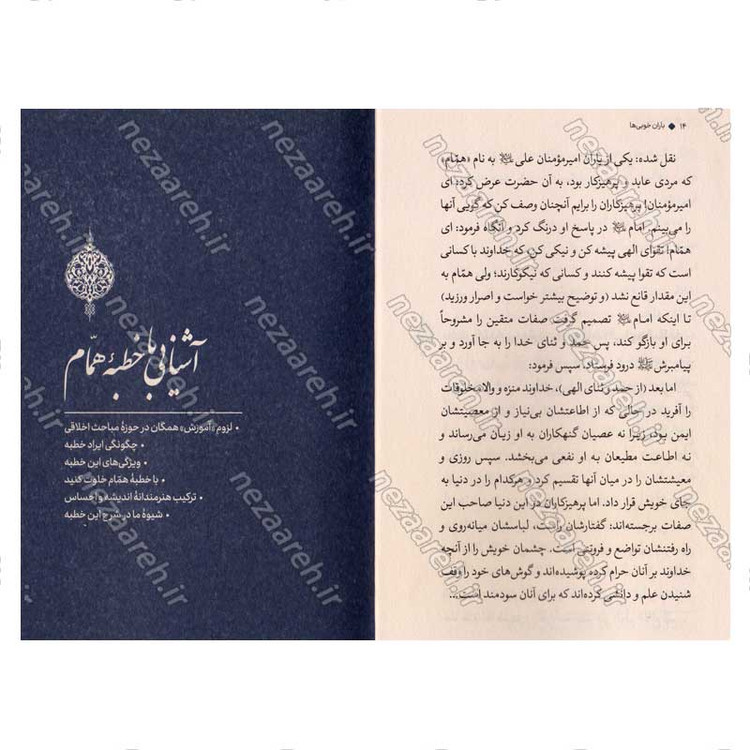 ۱۴ ◆ باران خوبی‌ها
نقل شده: یکی از یاران امیرمؤمنان علی ﷷ به نام «همّام»
که مردی عابد و پرهیزکار بود، به آن حضرت عرض کرد: ای
امیرمؤمنان! پرهیزکاران را برایم آنچنان وصف کن که گویی آنها
را می‌بینم. امام در پاسخ او درنگ کرد و آنگاه فرمود: ای
همّام! تقوای الهی پیشه کن و نیکی کن که خداوند با کسانی
است که تقوا پیشه کنند و کسانی که نیکوکارند؛ ولی همّام به
این مقدار قانع نشد (و توضیح بیشتر خواست و اصرار ورزید)
تا اینکه امام تصمیم گرفت صفات متقین را مشروحاً
برای او بازگو کند، پس حمد و ثنای خدا را به جا آورد و بر
پیامبرش ﷺ درود فرستاد. سپس فرمود:
اما بعد (از حمد و ثنای الهی)، خداوند منزه و والا، مخلوقات
را آفرید در حالی که از اطاعتشان بی‌نیاز و از معصیتشان
ایمن بود، زیرا نه عصیان گنهکاران به او زیان می‌رساند و
نه اطاعت مطیعان به او نفعی می‌بخشد. سپس روزی و
معیشتشان را در میان آنها تقسیم کرد و هرکدام را در دنیا به
جای خویش قرار داد. اما پرهیزکاران در این دنیا صاحب این
صفات برجسته‌اند: گفتارشان راست، لباسشان میانه‌روی و
راه رفتنشان تواضع و فروتنی است. چشمان خویش را از آنچه
خداوند بر آنان حرام کرده پوشیده‌اند و گوش‌های خود را وقف
شنیدن علم و دانشی کرده‌اند که برای آنان سودمند است...
آشنایی با خطبهٔ همّام
• لزوم «آموزش» همگان در حوزهٔ مباحث اخلاقی
• چگونگی ایراد خطبه
• ویژگی‌های این خطبه
• با خطبهٔ همّام خلوت کنید
• ترکیب هنرمندانهٔ اندیشه و احساس
• شیوهٔ ما در شرح این خطبه
nezaareh.ir
nezaareh.ir
nezaareh.ir
nezaareh.ir
nezaareh.ir
nezaareh.ir
nezaareh.ir
nezaareh.ir